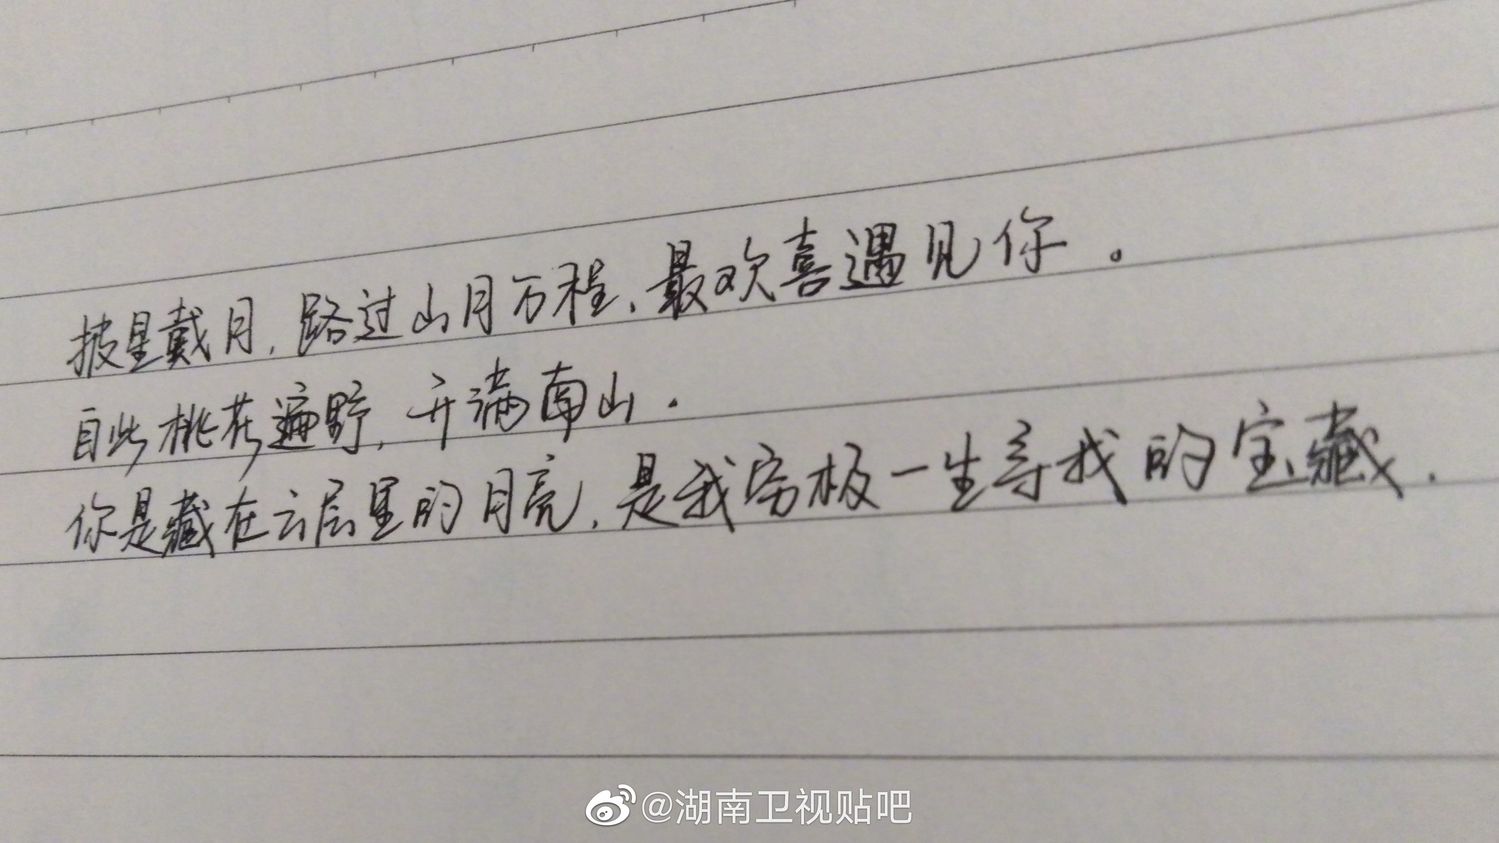 披星戴月,路过山月万程,最欢喜遇见你。
自此桃花遍野,开满南山.
你是藏在云层里的月亮,是我穷极一生寻找的宝藏.
@湖南卫视贴吧